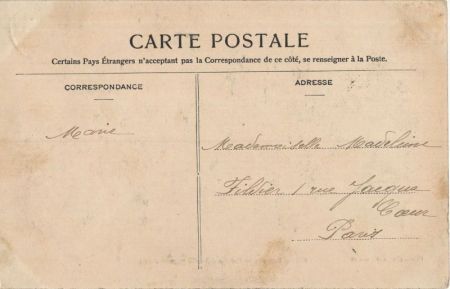 CARTE POSTALE
Certains Pays Étrangers n'acceptant pas la Correspondance de ce côté, se renseigner à la Poste.
CORRESPONDANCE
ADRESSE
Marie
Mademoiselle Madeleine
1 rue Jacques
Cœur
Paris